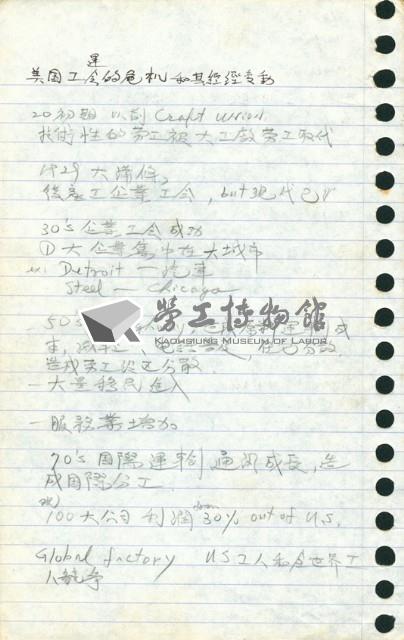 美国工運的危机和其經經变動
20初期 以前 Craft union
技術性的勞工被大工厰勞工取代
1929大蕭條,
後產工企業工会, but現代已
30's 企業工会成功
①大企業集中在大城市
ex: Detroit — 汽車
Steel — Chicago
50's
勞工博物館
KAOHSIUNG MUSEUM OF LABOR
造成勞工 分散
— 大量移民進入
— 服務業增加
70's 國際運輸通訊成長, 造
成國際分工
100大公司利潤 from 30% out of U.S.
Global factory US工人和全世界工
人競爭